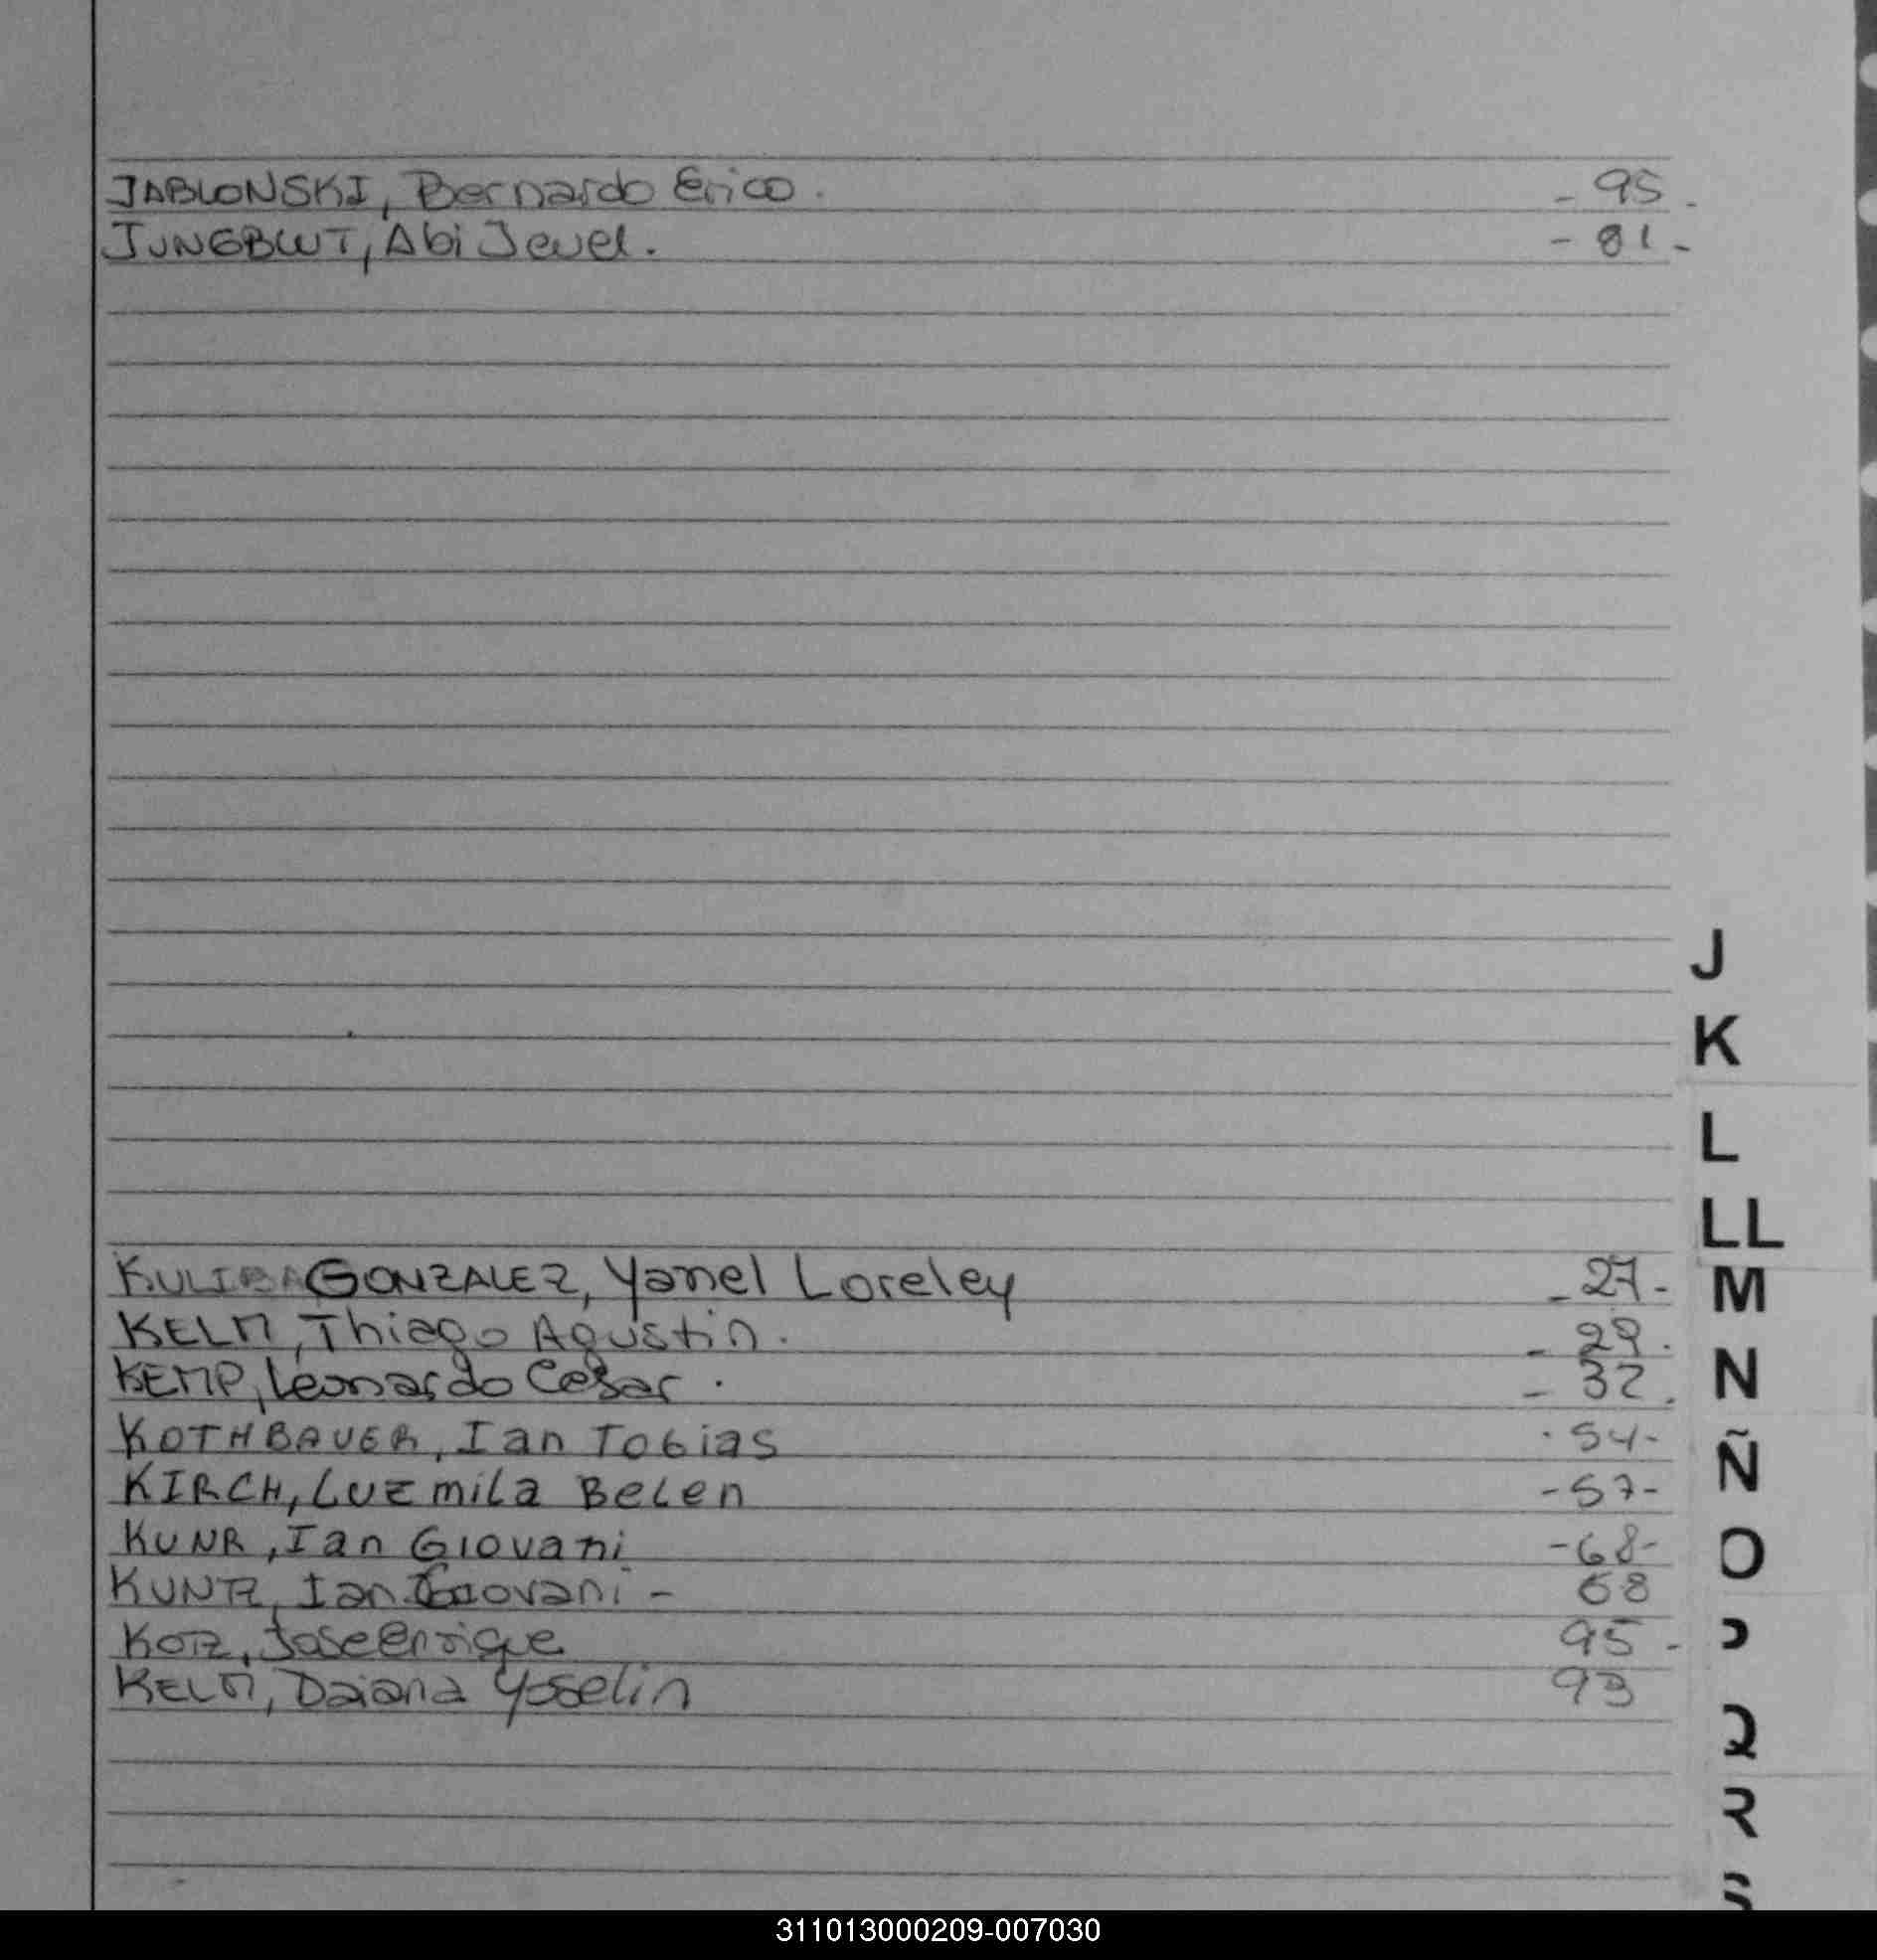 JABLONSKI, Bernardo Erico. - 95.
JUNGBLUT, Abi Jewel. - 81-
J
K
L
LL
KULIBA GONZALEZ, Yanel Loreley - 27-
M
KELM, Thiago Agustin. - 29.
KEMP, Leonardo Cesar. - 32.
N
KOTHBAUER, Ian Tobias . 54-
KIRCH, Luz mila Belen - 57-
Ñ
KUNR, Ian Giovani - 68-
O
KUNTZ, Ian Giovani - 68
KOTZ, Jose Enrique 95 -
P
KELM, Daiana Yoselin 93
Q
R
S
311013000209-007030